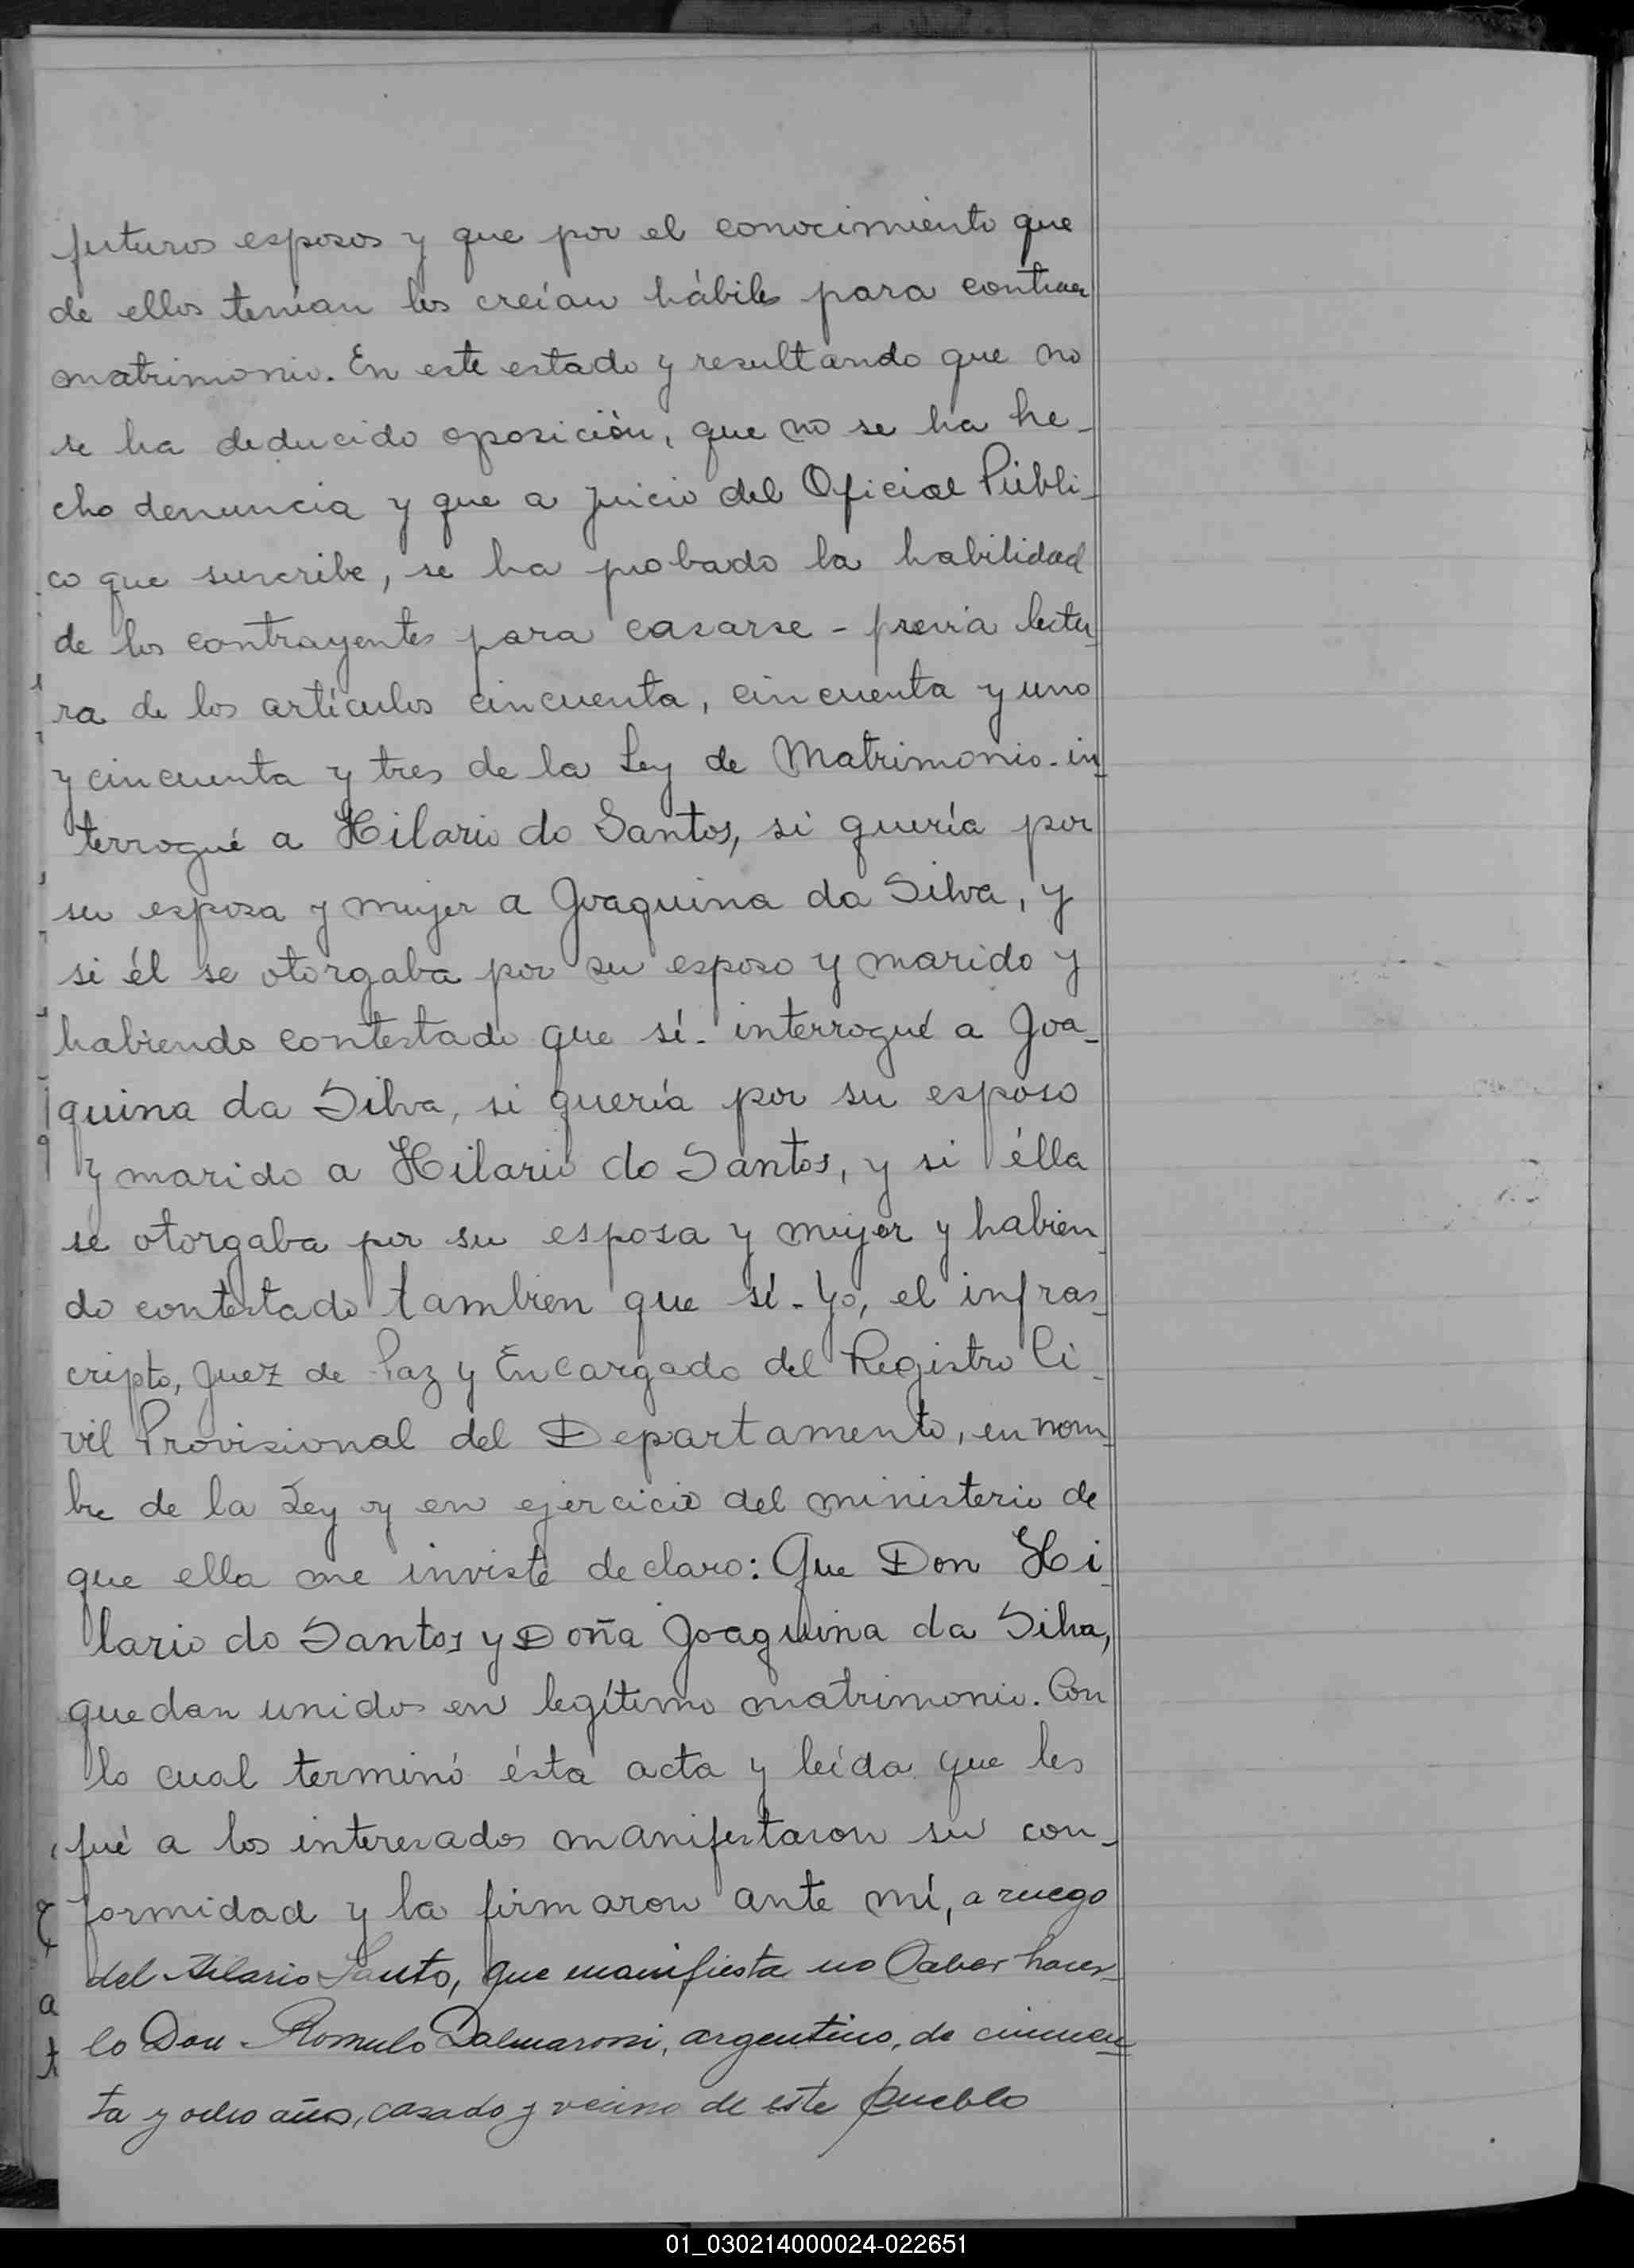 futuros esposos y que por el conocimiento que
de ellos tenían los creían hábiles para contraer
matrimonio. En este estado y resultando que no
se ha deducido oposición, que no se ha he-
cho denuncia y que a juicio del Oficial Públi-
co que suscribe, se ha probado la habilidad
de los contrayentes para casarse - previa lectu-
ra de los artículos cincuenta, cincuenta y uno
y cincuenta y tres de la Ley de Matrimonio - in-
terrogué a Hilario do Santos, si quería por
su esposa y mujer a Joaquina da Silva, y
si él se otorgaba por su esposo y marido y
habiendo contestado que sí - interrogué a Joa-
quina da Silva, si quería por su esposo
y marido a Hilario do Santos, y si élla
se otorgaba por su esposa y mujer y habien-
do contestado tambien que sí - Yo, el infras-
cripto, Juez de Paz y Encargado del Registro Ci-
vil Provisional del Departamento, en nom-
bre de la Ley y en ejercicio del ministerio de
que ella me inviste declaro: Que Don Hi-
lario do Santos y Doña Joaquina da Silva,
quedan unidos en legítimo matrimonio. Con
lo cual terminó ésta acta y leída que les
fué a los interesados manifestaron su con-
formidad y la firmaron ante mí, a ruego
del Hilario Santo, que manifiesta no Saber hacer-
lo Don Romulo Dalmaroni, argentino, de cincuen-
ta y ocho años, casado y vecino de este pueblo
01_030214000024-022651